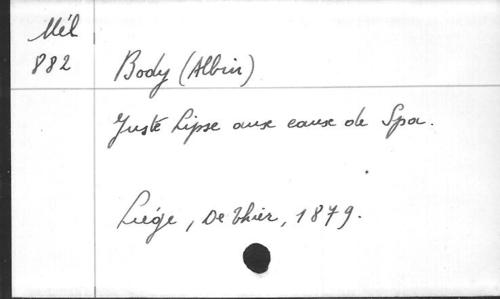 Mél
882
Body (Albin)
Juste Lipse aux eaux de Spa.
Liége, De Thier, 1879.